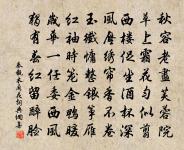 秋容老盡芙蓉院
草上霜花匀似剪
西樓促坐酒杯深
風壓繡簾香不卷
玉纖慵整銀箏雁
紅袖時籠金鴨暖
歲華一任委西風
獨有春紅留醉臉
秦觀木蘭花詞